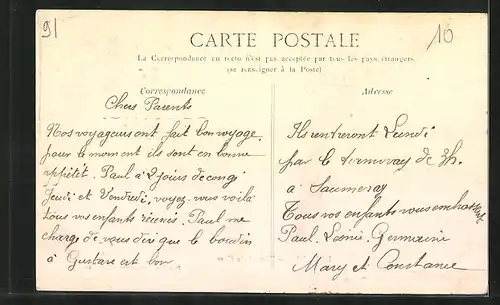 91
10
CARTE POSTALE
La Correspondance au recto n'est pas acceptée par tous les pays étrangers
(se renseigner à la Poste)
Correspondance
Chers Parents
Nos voyageurs ont fait bon voyage,
pour le moment ils sont en bonne
appétit. Paul a 2 jours de congé
Jeudi et Vendredi, voyez-vous voilà
tous vos enfants réunis. Paul me
charge de vous dire que le boudin
à Gustave est bon
Adresse
Ils rentreront Lundi
par le tramway de 3h.
à Saumeray
Tous vos enfants vous embrassent
Paul. Léonie. Germaine
Mary et Constance